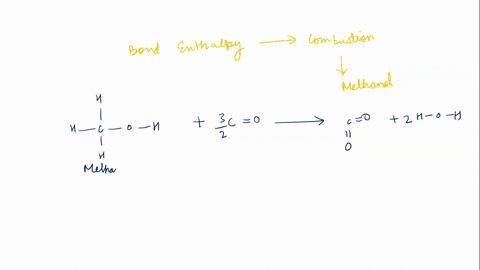 Bond Enthalpy → Combustion
↓
Methanol
H
H - C - O - H + 3/2 C = O → C = O + 2 H - O - H
H
O
Metha